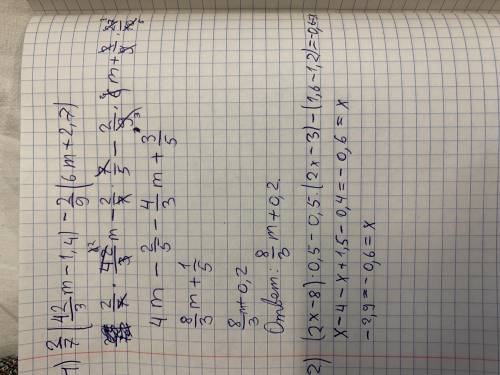 1) 2/7 (42/3 m - 1,4) - 2/9 (6m + 2,7)
2/7 · 42/3 m - 2/7 · 7/5 - 2/9 · 6m + 2/9 · 27/10
4m - 2/5 - 4/3 m + 3/5
8/3 m + 1/5
8/3 m + 0,2
Ответ: 8/3 m + 0,2.
2) (2x-8)·0,5 - 0,5·(2x-3) - (1,6-1,2) = -0,6x
x - 4 - x + 1,5 - 0,4 = -0,6 = x
-2,9 = -0,6 = x